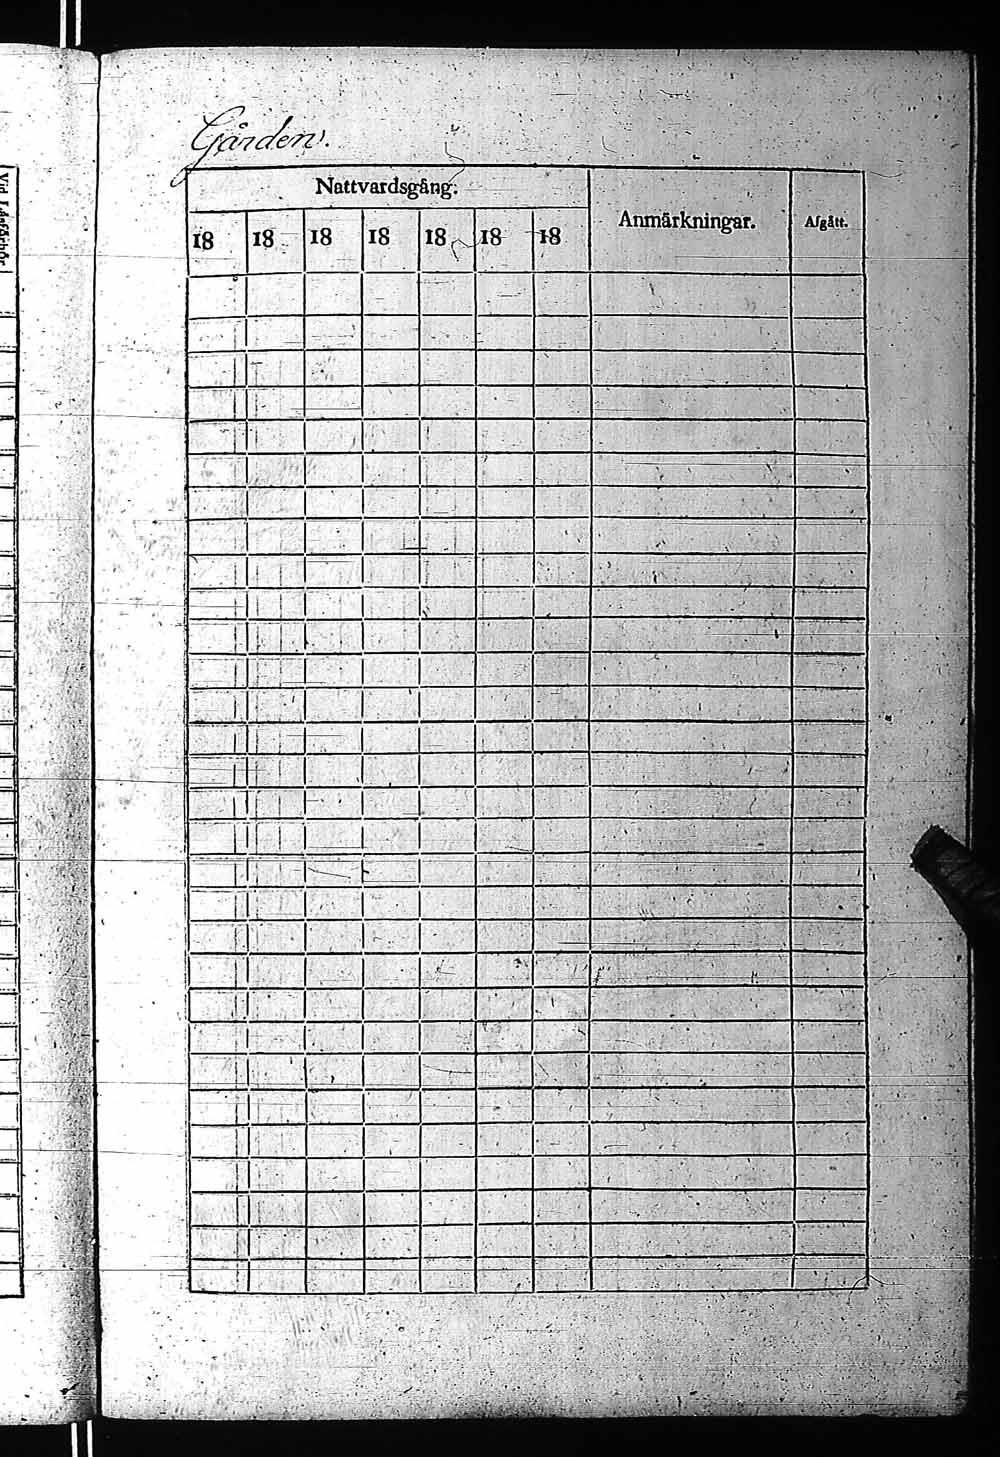 Gården.
Nattvardsgång.
Anmärkningar.
Afgått.
18 18 18 18 18 18 18
Vid Läseförhör